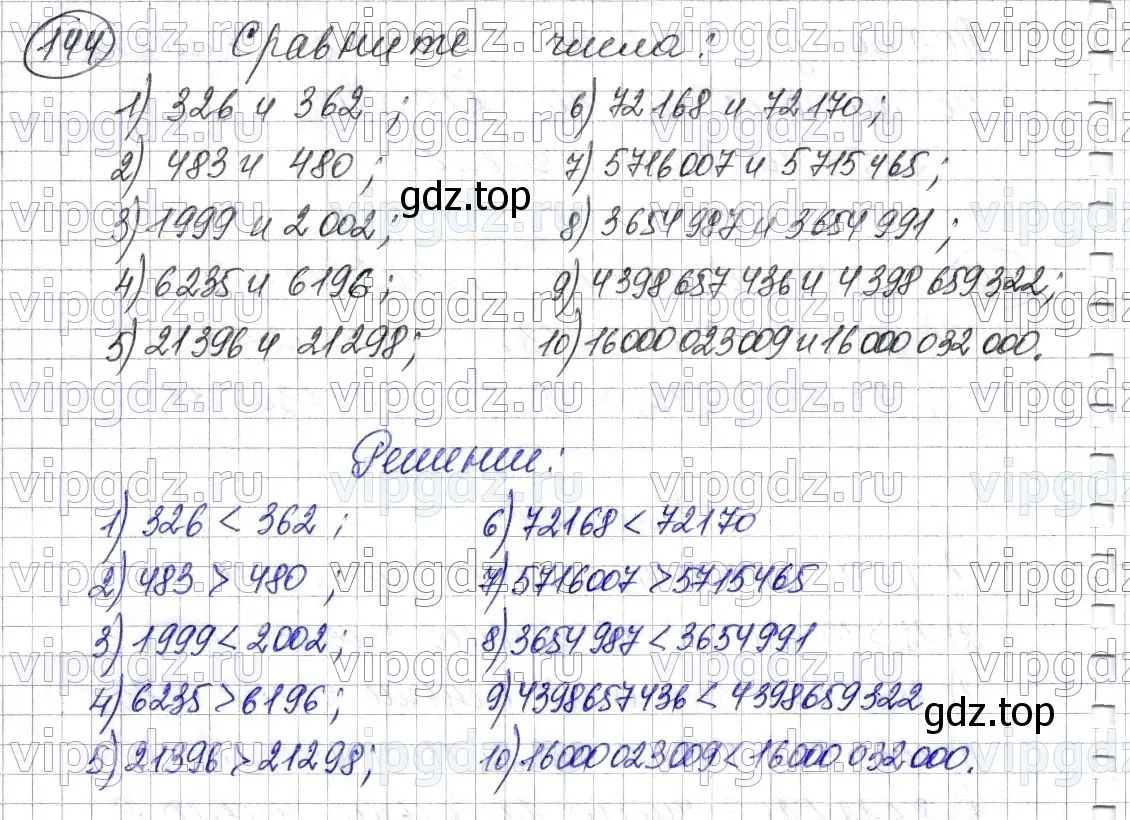 144 Сравните числа:
1) 326 и 362;
2) 483 и 480;
3) 1999 и 2002;
4) 6235 и 6196;
5) 21396 и 21298;
6) 72168 и 72170;
7) 5716007 и 5715465;
8) 3654987 и 3654991;
9) 4398657436 и 4398659322;
10) 16000023009 и 16000032000.
gdz.top
Решении:
1) 326 < 362;
2) 483 > 480;
3) 1999 < 2002;
4) 6235 > 6196;
5) 21396 > 21298;
6) 72168 < 72170
7) 5716007 > 5715465
8) 3654987 < 3654991
9) 4398657436 < 4398659322
10) 16000023009 < 16000032000.
gdz.top
vipgdz.ru